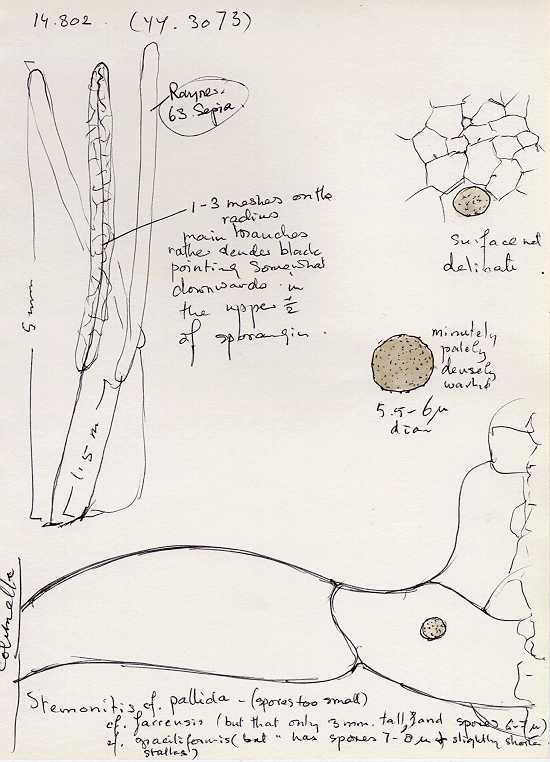 14.802. (YY. 3073)
Rayner.
63. Sepia.
1-3 meshes on the
radius
main branches
rather slender black
pointing somewhat
downwards in
the upper ½
of sporangia.
surface net
delicate.
5 mm
1.5 m
minutely
palely
densely
warted
5.5-6µ
diam
Columella
Stemonitis cf. pallida - (spores too small)
cf. farrensis (but that only 3 mm. tall, and spores 6-7µ)
cf. graciliformis (but " has spores 7-8µ & slightly shorter
stalks)